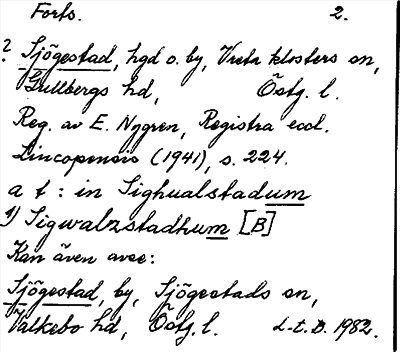 Forts. 2.
? Sjögestad, hgd o. by, Vreta klosters sn,
Gullbergs hd, Östg. l.
Reg. av E. Nygren, Registra eccl.
Lincopensis (1941), s. 224.
a t : in Sighualstadum
1) Sigwalzstadhum [B]
Kan även avse:
Sjögestad, by, Sjögestads sn,
Valkebo hd, Östg. l. L-t. D. 1982.